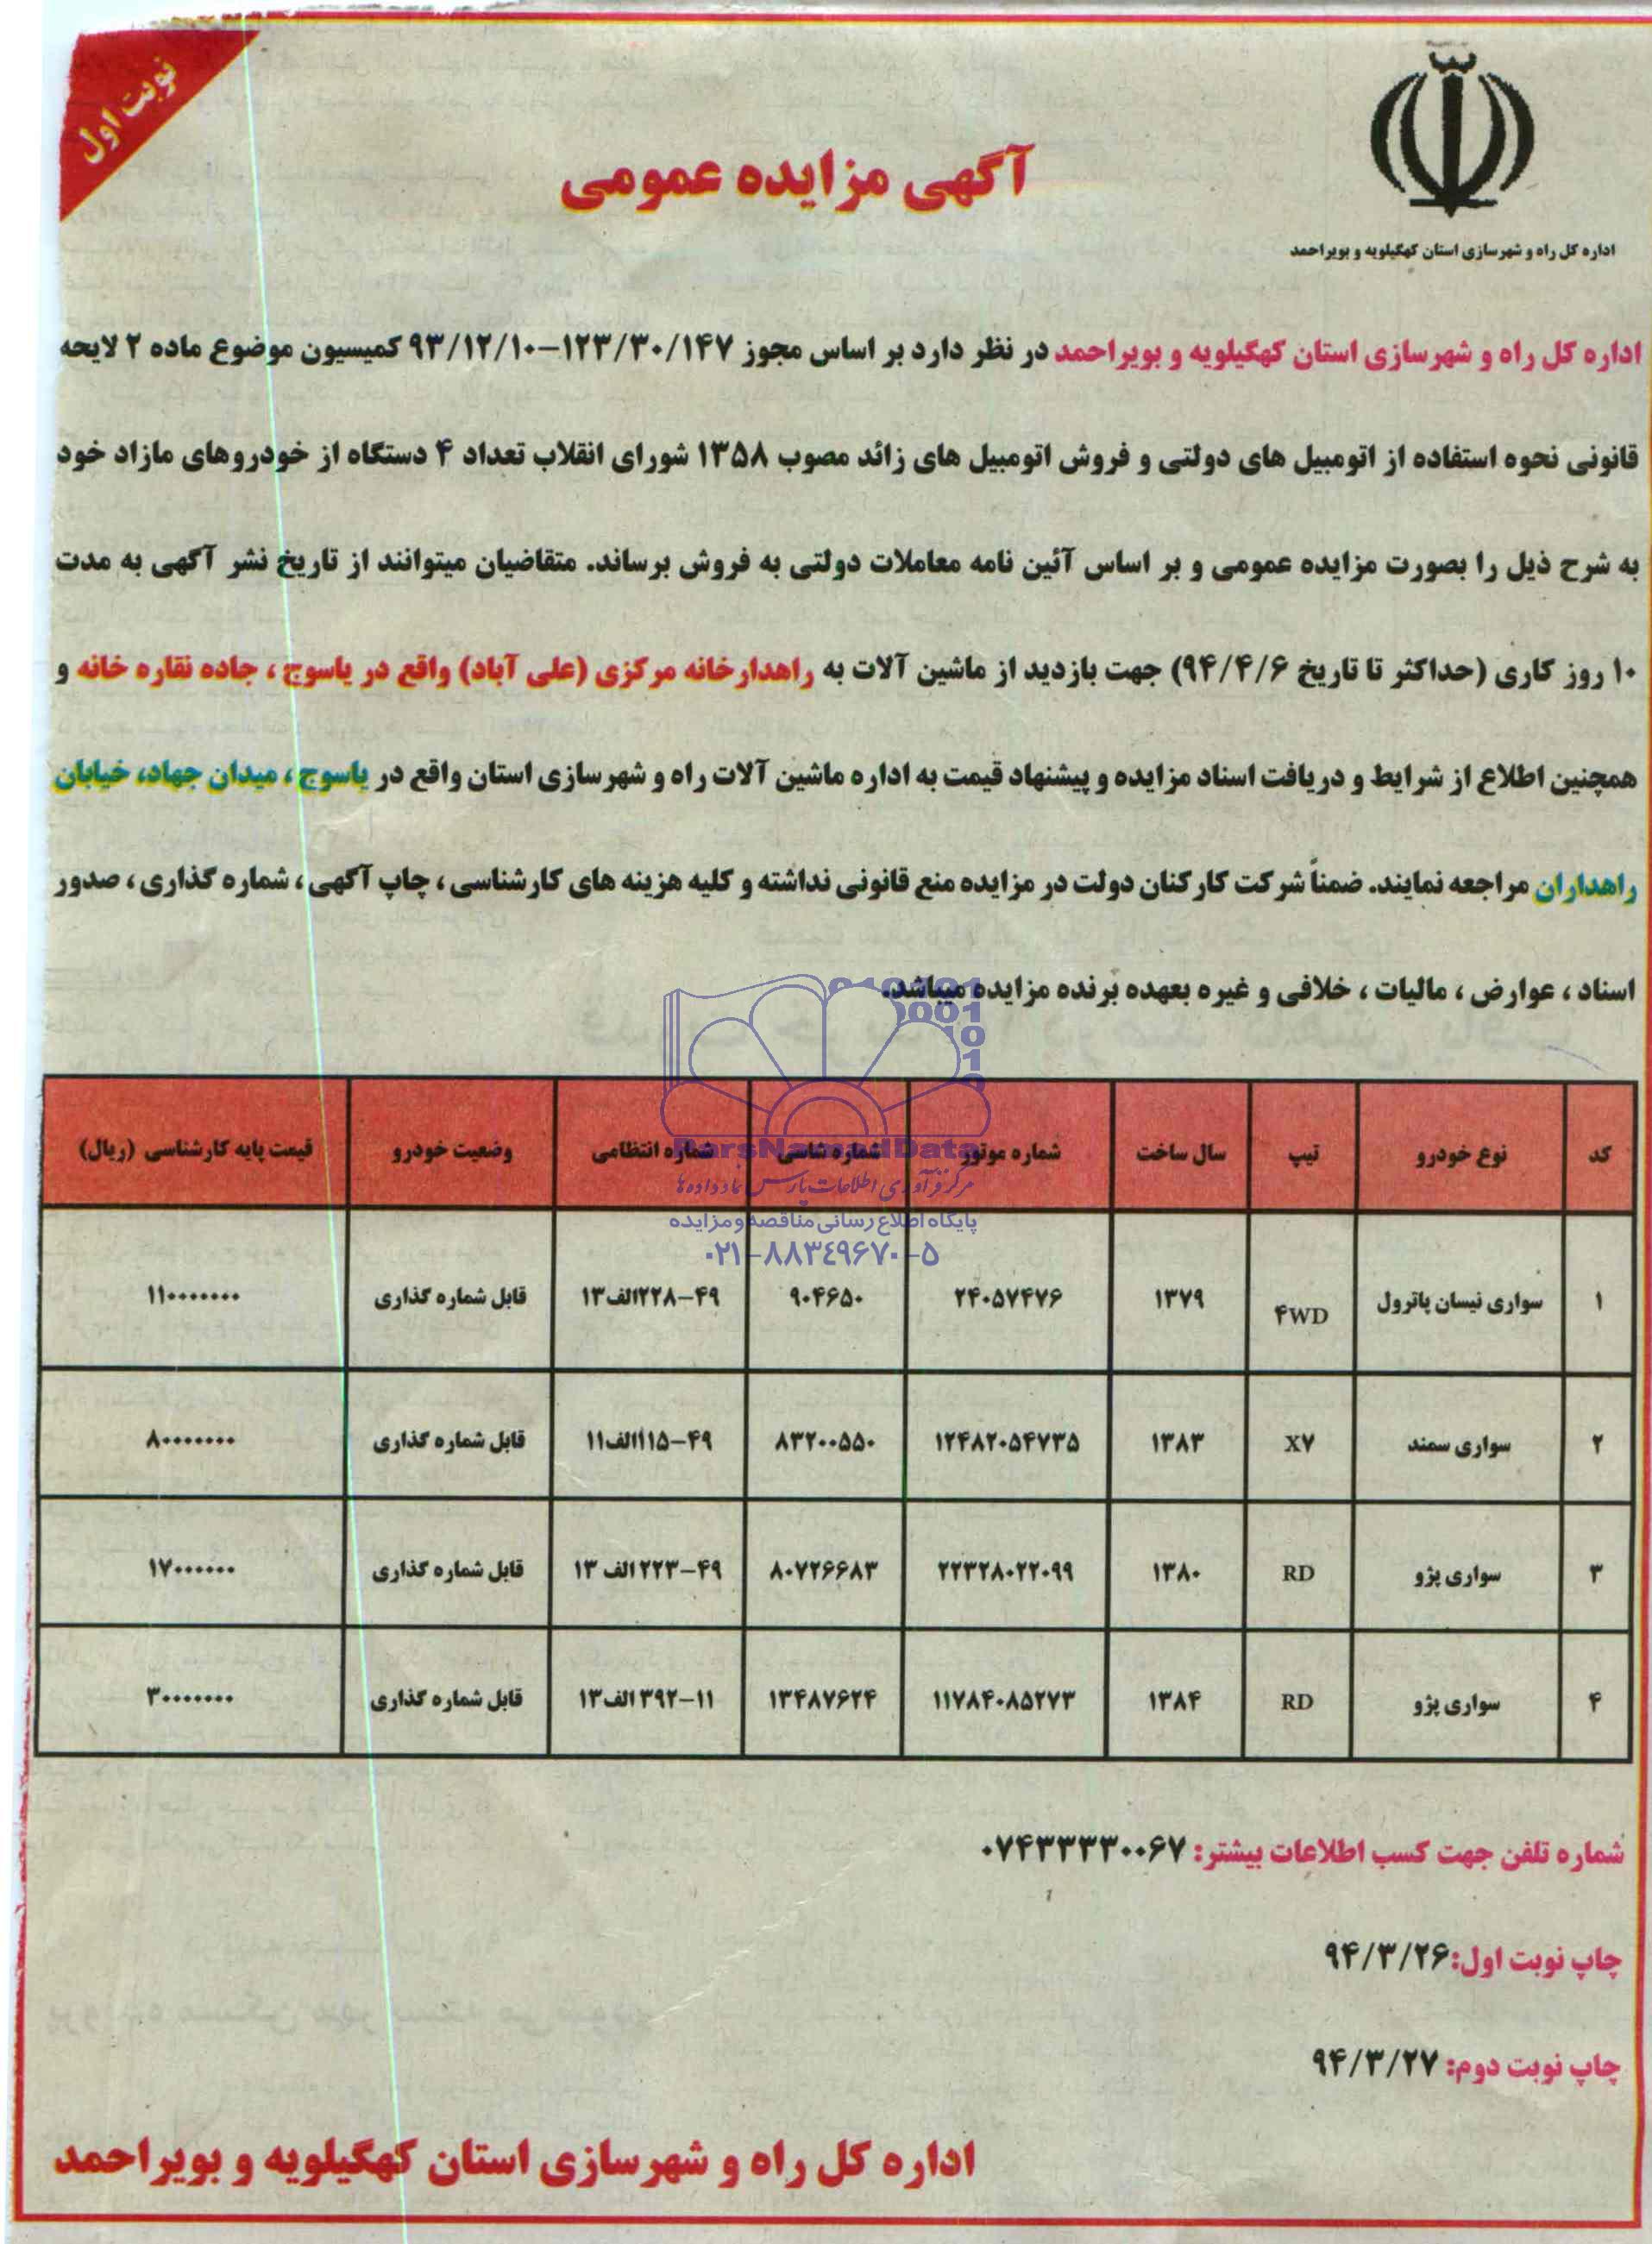 نوبت اول
آگهی مزایده عمومی
اداره کل راه و شهرسازی استان کهگیلویه و بویراحمد
اداره کل راه و شهرسازی استان کهگیلویه و بویراحمد در نظر دارد بر اساس مجوز ۱۲۳/۳۰/۱۴۷-۹۳/۱۲/۱۰ کمیسیون موضوع ماده ۲ لایحه
قانونی نحوه استفاده از اتومبیل های دولتی و فروش اتومبیل های زائد مصوب ۱۳۵۸ شورای انقلاب تعداد ۴ دستگاه از خودروهای مازاد خود
به شرح ذیل را بصورت مزایده عمومی و بر اساس آئین نامه معاملات دولتی به فروش برساند. متقاضیان میتوانند از تاریخ نشر آگهی به مدت
۱۰ روز کاری (حداکثر تا تاریخ ۹۴/۴/۶) جهت بازدید از ماشین آلات به راهدارخانه مرکزی (علی آباد) واقع در یاسوج ، جاده نقاره خانه و
همچنین اطلاع از شرایط و دریافت اسناد مزایده و پیشنهاد قیمت به اداره ماشین آلات راه و شهرسازی استان واقع در یاسوج ، میدان جهاد، خیابان
راهداران مراجعه نمایند. ضمناً شرکت کارکنان دولت در مزایده منع قانونی نداشته و کلیه هزینه های کارشناسی ، چاپ آگهی ، شماره گذاری ، صدور
اسناد ، عوارض ، مالیات ، خلافی و غیره بعهده برنده مزایده میباشد.
کد نوع خودرو تیپ سال ساخت شماره موتور شماره شاسی شماره انتظامی وضعیت خودرو قیمت پایه کارشناسی (ریال)
۱ سواری نیسان پاترول ۴WD ۱۳۷۹ ۲۴۰۵۷۴۷۶ ۹۰۴۶۵۰ ۴۹-۲۲۸الف۱۳ قابل شماره گذاری ۱۱۰۰۰۰۰۰۰
۲ سواری سمند X۷ ۱۳۸۳ ۱۲۴۸۲۰۵۴۷۳۵ ۸۳۲۰۰۵۵۰ ۴۹-۱۱۵الف۱۱ قابل شماره گذاری ۸۰۰۰۰۰۰۰
۳ سواری پژو RD ۱۳۸۰ ۲۲۳۲۸۰۲۲۰۹۹ ۸۰۷۲۶۶۸۳ ۴۹-۲۲۳الف ۱۳ قابل شماره گذاری ۱۷۰۰۰۰۰۰
۴ سواری پژو RD ۱۳۸۴ ۱۱۷۸۴۰۸۵۲۷۳ ۱۳۴۸۷۶۲۴ ۱۱-۳۹۲الف۱۳ قابل شماره گذاری ۳۰۰۰۰۰۰۰
ParsNamadData
مرکز فرآوری اطلاعات پارس نماد داده ها
پایگاه اطلاع رسانی مناقصه و مزایده
۰۲۱-۸۸۳۴۹۶۷۰-۵
شماره تلفن جهت کسب اطلاعات بیشتر: ۰۷۴۳۳۳۳۰۰۶۷
چاپ نوبت اول:۹۴/۳/۲۶
چاپ نوبت دوم: ۹۴/۳/۲۷
اداره کل راه و شهرسازی استان کهگیلویه و بویراحمد